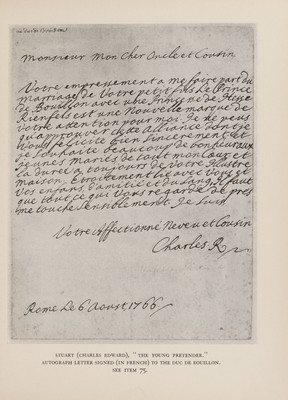 Monsieur Mon Cher Oncle et Cousin
Votre empressement a me faire part du
Marriage de Votre petit fils Le Prince
de Bouillon avec une Princesse de Hesse
Rienfels est une Nouvelle marque de
votre attention pour moi. Je ne peus
qu'approuver cette Alliance dont je
Vous felicite bien Sincerement, et
je souhaite beaucoup de bonheur aux
jeunes Mariés de tout mon Cœur et
la durée a toujours de Votre Illustre
Maison. Etroitement lié avec Vous et
Vos enfans, d'amitie et du sang, il faut
que tout ce qui Vous regarde de près
me touche Sensiblement. Je Suis
Votre Affectionné Neveu et Cousin
Charles R
Rome Le 6 Aoust, 1766
STUART (CHARLES EDWARD), "THE YOUNG PRETENDER."
AUTOGRAPH LETTER SIGNED (IN FRENCH) TO THE DUC DE BOUILLON.
SEE ITEM 75.